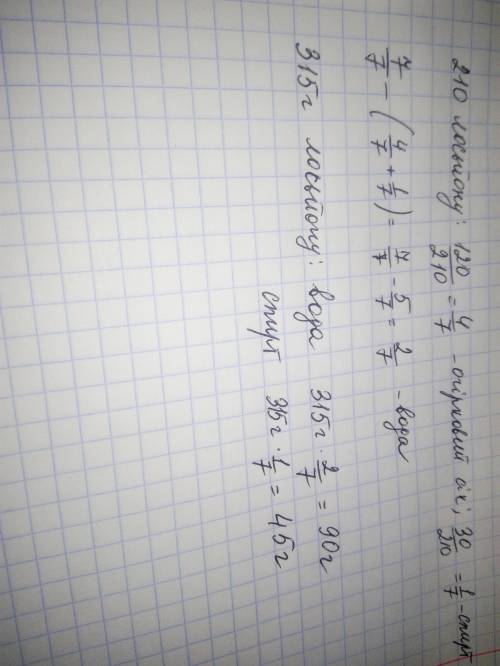 210 лосьйону: 120/210 = 4/7 - огірковий сік; 30/210 = 1/7 - спирт
7/7 - (4/7 + 1/7) = 7/7 - 5/7 = 2/7 - вода
315г лосьйону: вода 315г · 2/7 = 90г
спирт 315г · 1/7 = 45г